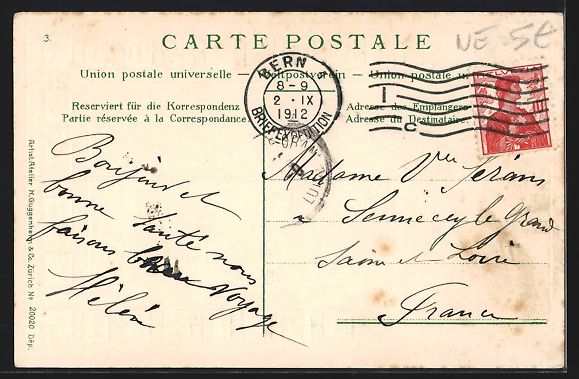 3.
CARTE POSTALE
NE 5€
Union postale universelle — Weltpostverein — Union postale un
Reserviert für die Korrespondenz
Partie réservée à la Correspondance.
Adresse des Empfängers
Adresse du Destinataire.
BERN 1
8-9
2. IX
1912
BRIEFEXPEDITION
Bonjour et
bonne santé nous
faisons bonne voyage
Hélén
Madame Vve
à Sennecey le Grand
Saône et Loire
France
Artist. Atelier H. Guggenheim & Co. Zürich No 20020 Dép.